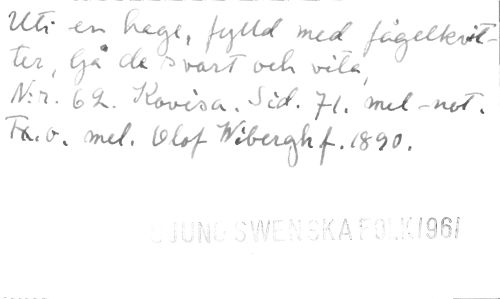 Uti en hage, fylld med fågelkvit-
ter, Gå de svart och vita,
N:r. 62. Kovisa. Sid. 71. mel-not.
Tx. o. mel. Olof Wibergh f. 1890.
SJUNG SWENSKA FOLK 1961